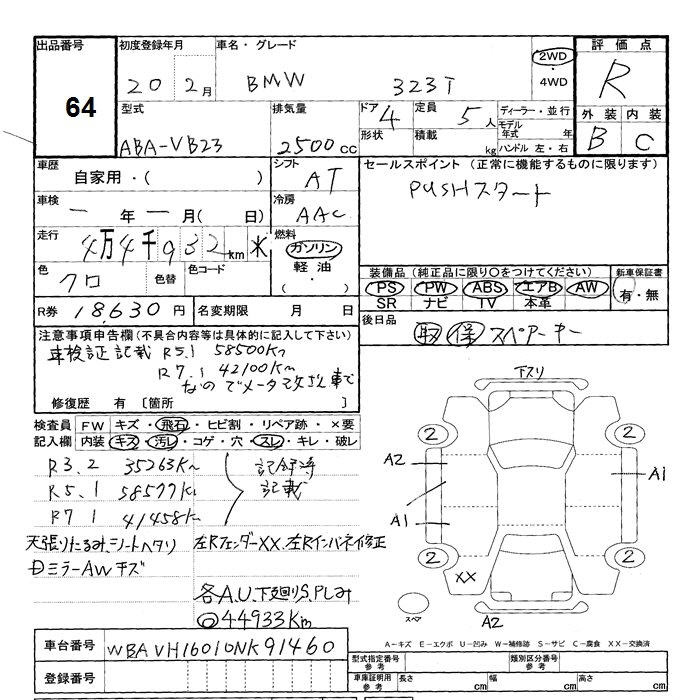 出品番号
64
初度登録年月
20 2月
車名・グレード
BMW 323i
2WD
・
4WD
評価点
R
外装 内装
B C
型式
ABA-VB23
排気量
2500cc
ドア 4
形状
定員 5人
積載 kg
ディーラー・並行
モデル年式 年
ハンドル 左・右
車歴
自家用・( )
シフト
AT
セールスポイント (正常に機能するものに限ります)
PUSHスタート
車検
ー年ー月( 日)
冷房
AAC
走行
4万4千932km *
燃料
ガソリン
軽油
・
( )
色
クロ
色替
色コード
装備品 (純正品に限り○をつけてください)
PS PW ABS エアB AW
SR ナビ TV 本革
新車保証書
有・無
R券 18,630円
名変期限 月 日
後日品
取 保 スペアーキー
注意事項申告欄 (不具合内容等は具体的に記入して下さい)
車検証記載 R5.1 58500Km
R7.1 42100Km
なのでメータ改ざん車で
修復歴 有 [箇所 ]
検査員記入欄
FW キズ・飛石・ヒビ割・リペア跡・×要
内装 キズ・汚レ・コゲ・穴・スレ・キレ・破レ
R3.2 35263Km
R5.1 58577Km
R7.1 41458Km
記録簿
記載
天張りたるみ、シートヘタリ
左Rフェンダーxx、左Rインパネ修正
Dミラー AWキズ
各A.U、下廻りS、Pしみ
◎44933Km
下スリ
2
2
A2
A1
A1
2
2
XX
スペア
A2
A-キズ E-エクボ U-凹み W-補修跡 S-サビ C-腐食 XX-交換済
車台番号 WBAVH16010NK91460
登録番号
型式指定番号
参考
類別区分番号
参考
車庫証明用
参考
長さ cm
幅 cm
高さ cm